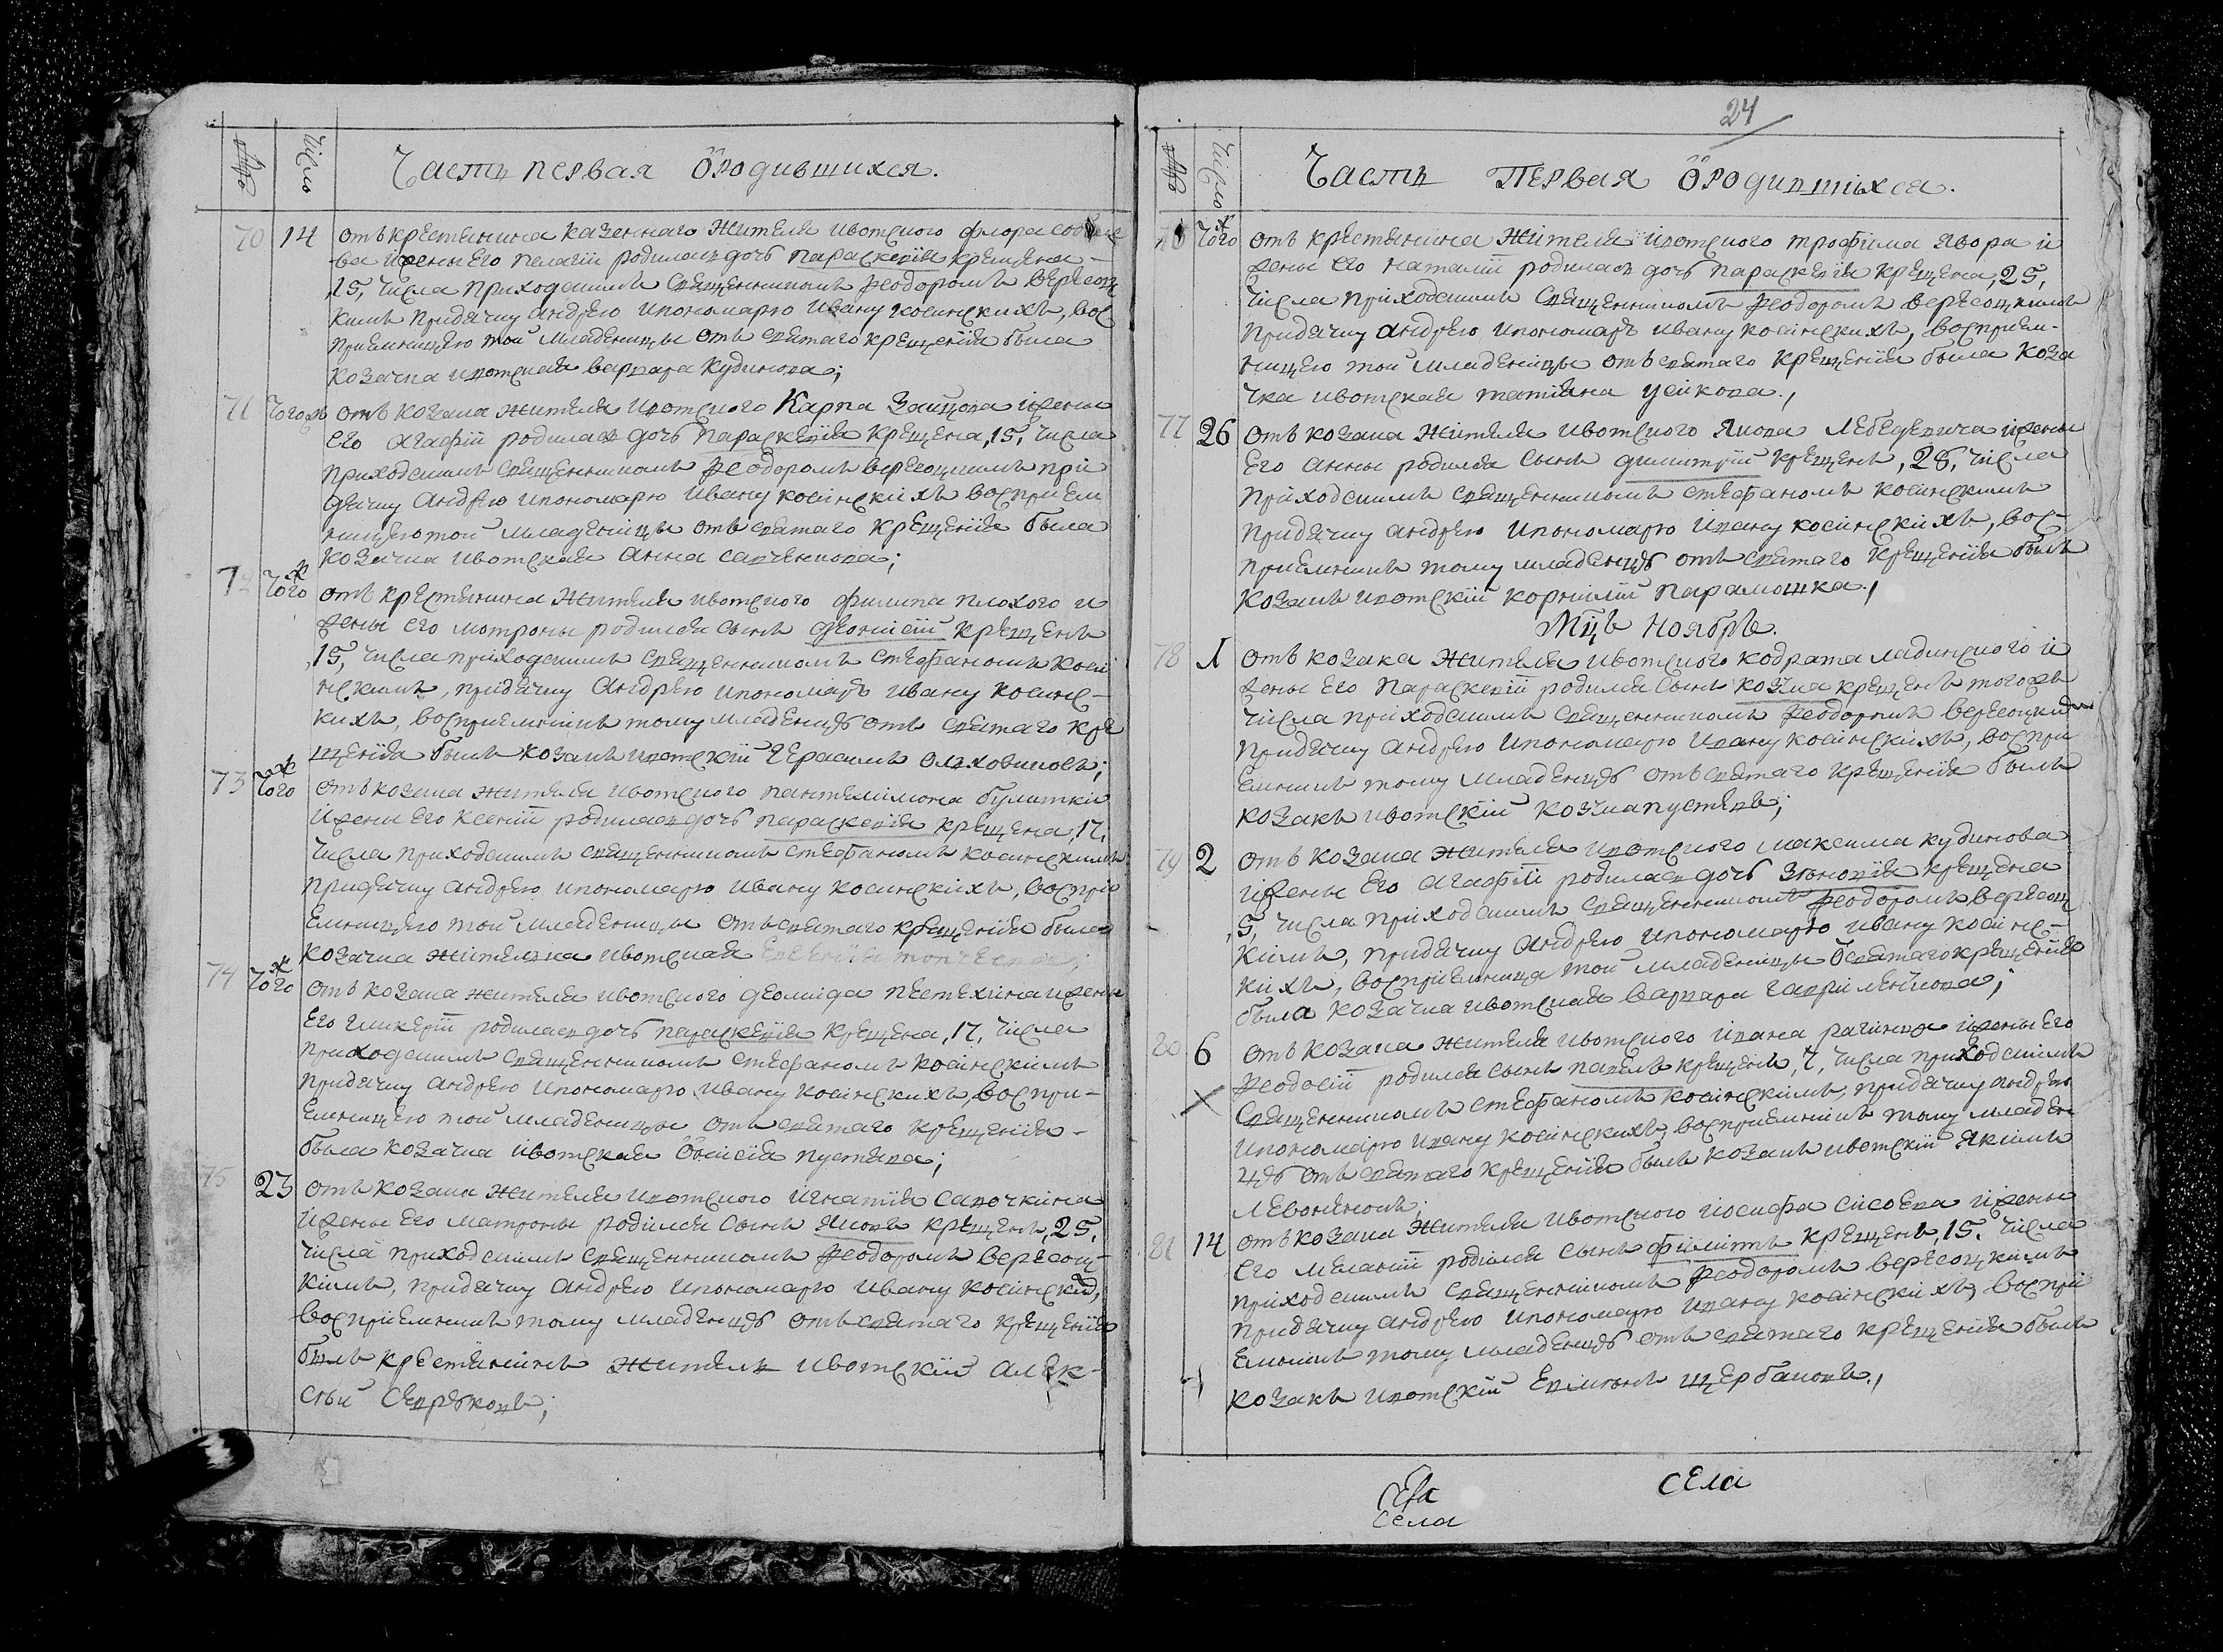 Число
Часть первая о родившихся.
70 14 отъ крестянина казеннаго жителя ивотского флора
ва и жены его пелагiи родилась дочь параскевiя крещена
15, числа приходскимъ священникомъ феодоромъ вересоц
кимъ придячку андрею ипономарю ивану косинскихъ, вос
приемницею той младеницы отъ святаго крещенiя была
козачка ивотская варвара кудинова;
71 тогожъ отъ козака жителя ивотского Карпа Зайцова и жены
его агафiи родилась дочь параскевiя крещена, 15, числа
приходскимъ священникомъ феодоромъ вересоцкимъ при
дячку андрею ипономарю ивану косинскихъ восприем
ницею той младеницы отъ святаго крещенiя была
козачка ивотская анна савченкова;
72 тогож отъ крестянина жителя ивотского филипа плохого и
жены его мотроны родился сынъ деонисiй крещенъ
15, числа приходскимъ священникомъ стефаномъ коси
нскимъ, придячку андрею ипономаръ ивану косинс-
кихъ, восприемникъ тому младенцу отъ святаго кре
щенiя былъ козакъ ивотскiй герасимъ ольховиковъ;
73 тогож отъ козака жителя ивотского пантелiмона булитки
и жены его ксенiи родилась дочь параскевiя крещена, 17,
числа приходскимъ священникомъ стефаномъ косинскимъ
придячку андрею ипономарю ивану косинскихъ, воспрiе
емницею той младеницы отъ святаго крещенiя была
козачка жителька ивотская
74 тогож отъ козака жителя ивотского деомида пестехина и жены
его гликерiи родилась дочь параскевiя крещена, 17, числа
приходскимъ священникомъ стефаномъ косинскимъ
придячку андрею ипономарю ивану косинскихъ, воспри-
емницею той младеницы отъ святаго крещенiя-
была козачка ивотская онисiя пустава;
75 23 отъ козака жителя ивотского игнатiя савочкина
и жены его матроны родился сынъ яковъ крещенъ, 25,
числа приходскимъ священникомъ феодоромъ вересоц-
кимъ, придячку андрею ипономарю ивану косинских,
воспрiемникъ тому младенцу отъ святаго крещенiя
былъ крестянинъ житель ивотскiй алек-
сѣй севрюковъ;
24
Число
Часть Первая о родившихся.
76 тогож отъ крестянина жителя ивотского трофима явора и
жены его наталiи родилась дочь параскевiя крещена, 25,
числа приходскимъ священникомъ феодоромъ вересоцкимъ
придячку андрею ипономаръ ивану косинскихъ, восприем-
ницею той младеницы отъ святаго крещенiя была коза
чка ивотская татiяна усикова.,
77 26 отъ козака жителя ивотского якова лебедевича и жены
его анны родился сынъ димитрiй крещенъ, 28, числа
приходскимъ священникомъ стефаномъ косинскимъ
придячку андрею ипономарю ивану косинскихъ, вос-
приемникъ тому младенцу отъ святаго крещенiя былъ
козакъ ивотскiй корнилiй парамошка.,
Мцъ ноябръ.
78 1 отъ козака жителя ивотского кодрата ладинского и
жены его параскевiи родился сынъ козма крещенъ тогожъ
числа приходскимъ священникомъ феодоромъ вересоцким
придячку андрею ипономарю ивану косинскихъ, воспри
емникъ тому младенцу отъ святаго крещенiя былъ
козакъ ивотскiй козма пустявъ;
79 2 отъ козака жителя ивотского максима кудинова
и жены его агафiи родилась дочь зѣновiя крещена
5, числа приходскимъ священникомъ феодоромъ вересоц
кимъ, придячку андрею ипономарю ивану косинс-
кихъ, воспрiемница той младеницы о святаго крещенiя
была козачка ивотская варвара гавриленкова;
80 6 отъ козака жителя ивотского ивана рагинка и жены его
феодосiи родился сынъ павелъ крещенъ, 7, числа приходскимъ
священникомъ стефаномъ косинскимъ, придячку андрею
ипономарю ивану косинскихъ, восприемникъ тому младен
цу отъ святаго крещенiя былъ козакъ ивотскiй якимъ
левоненокъ;
81 14 отъ козака жителя ивотского иосифа сисоева и жены
его меланiи родился сынъ филиппъ крещенъ, 15, числа
приходскимъ священникомъ феодоромъ вересоцкимъ
придячку андрею ипономарю ивану косинскихъ, воспри
емникъ тому младенцу отъ святаго крещенiя былъ
козакъ ивотскiй щербаковъ.,
села
села